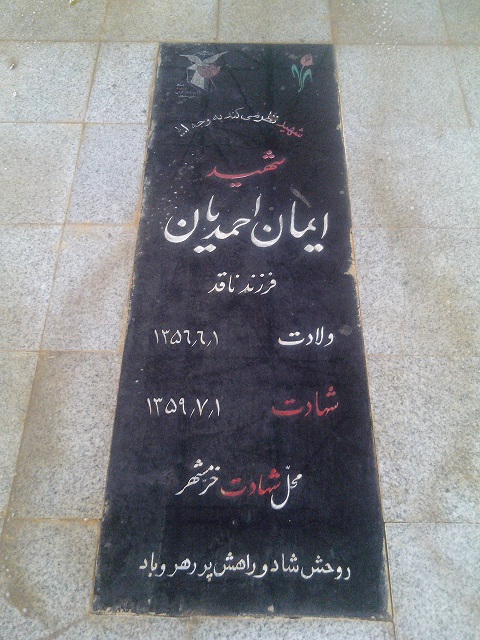 شهید نظر می کند به وجه الله
شهید
ایمان احمدیان
فرزند ناقد
ولادت ۱۳۵۶٫۶٫۱
شهادت ۱۳۵۹٫۷٫۱
محلّ شهادت خرمشهر
روحش شاد و راهش پر رهرو باد